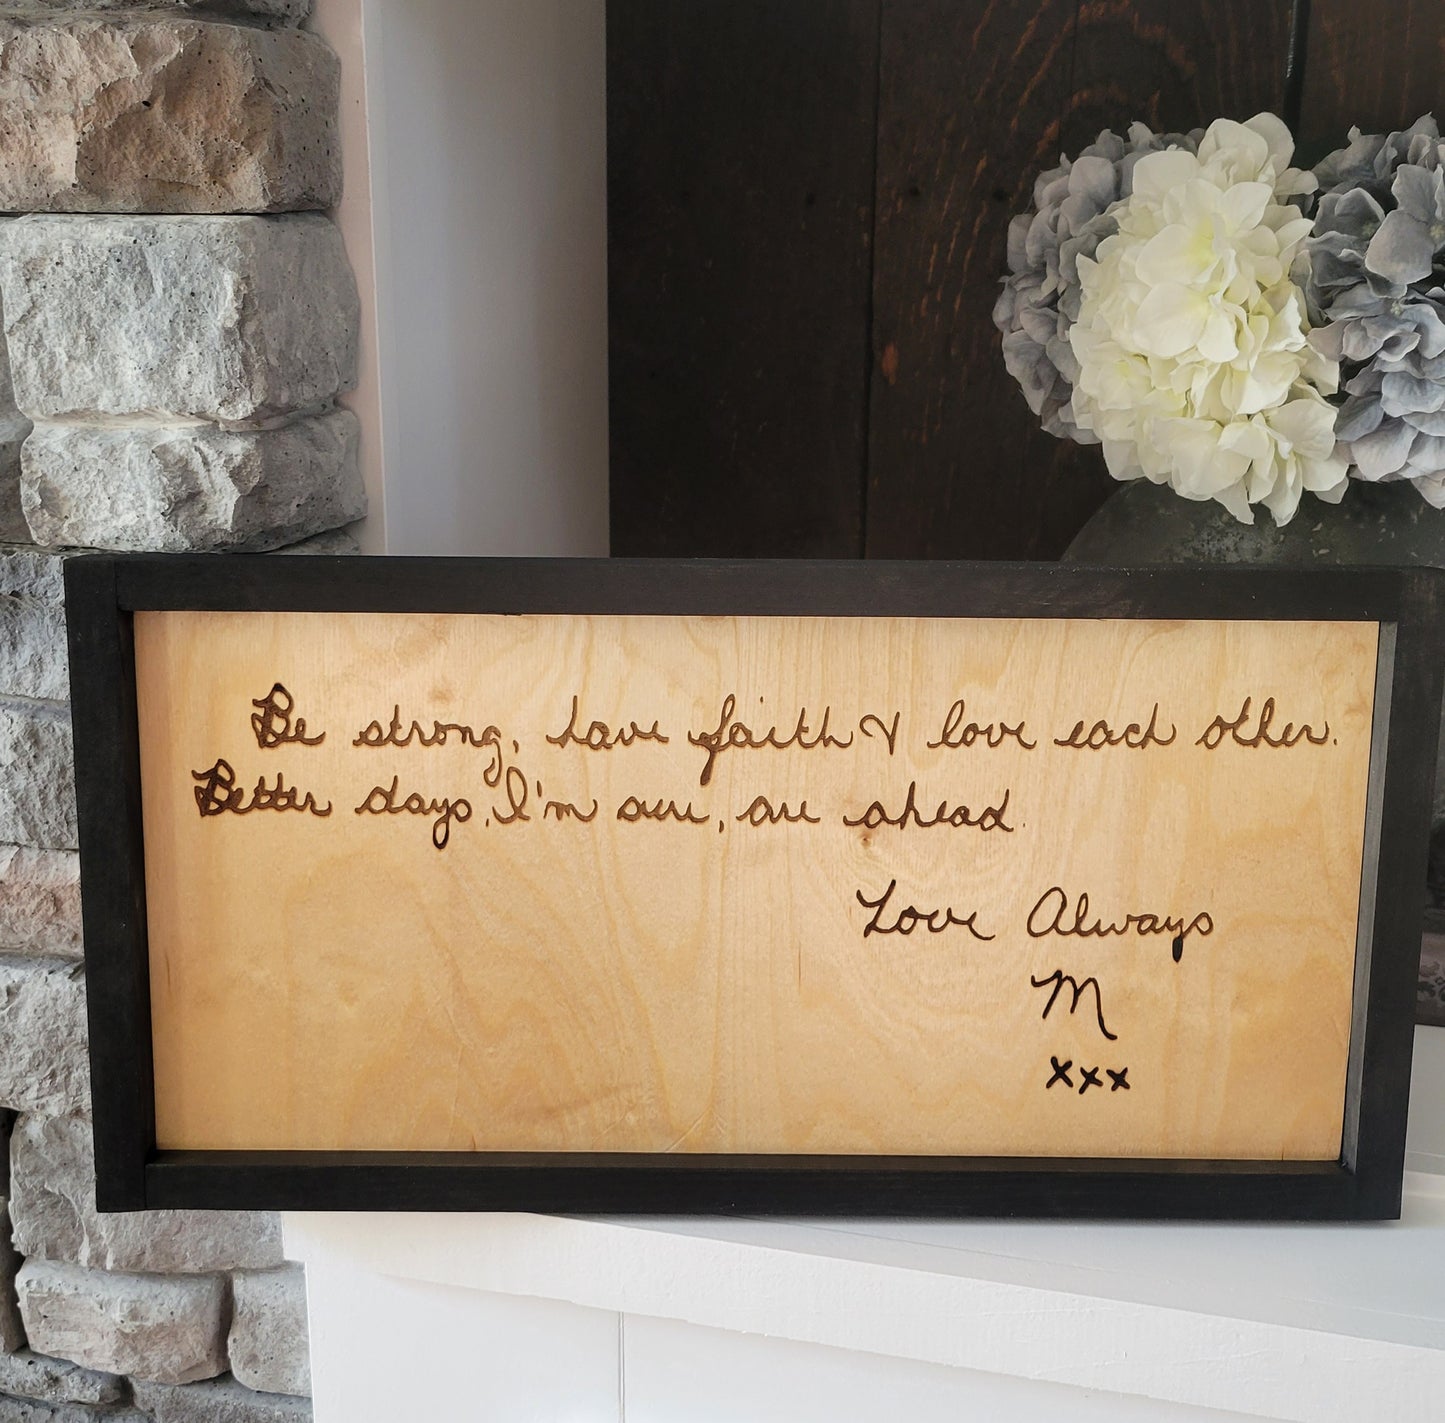 Be strong, have faith & love each other.
Better days, I'm sure, are ahead.
Love Always
M
xxx